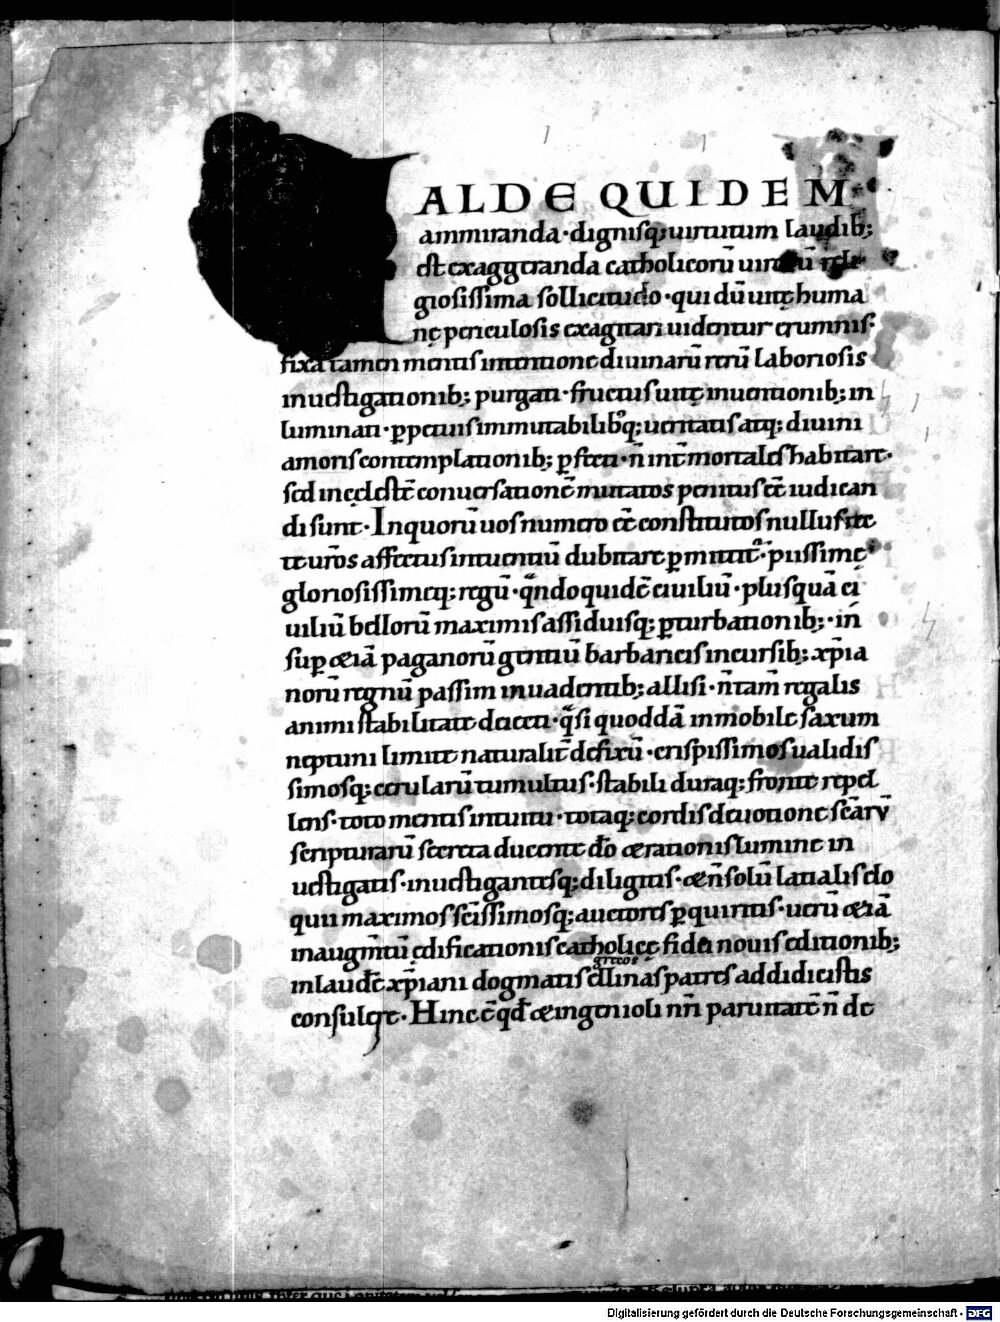 ALDE QUIDEM
ammiranda·dignisq;uirtutum laudib;
est exaggeranda catholicorū
giosissima sollicitudo·qui dū uitę huma
nę periculosis exagitari uidentur erumnis·
fixa tamen mentis intentione diuinarū rerū laboriosis
inuestigationib; purgari·fructus uitę inuentionib; in
luminari· ꝑpetuis immutabilibꝰq; ueritatis atq; diuini
amoris contemplationib; ꝑfecti·n̄ int̄ mortales habitare·
sed in cęlestē conuersationē mutatos penitus eē iudican
di sunt·Inquorū uos numero eē constitutos nullus rite
ur̄os affectus intuentiū dubitare ꝑmittit̄·piissimę
gloriosissimęq; regū·qn̄do quidē ciuiliū·plusquā ci
uiliū bellorū maximis assiduisq; ꝑturbationib;·in
suꝑ &iā paganorū gentiū barbaricis incursib; xp̄ia
norū regnū passim inuadentib; allisi·n̄ tam̄ regalis
animi stabilitate deiecti·qͣsi quoddā immobile saxum
neptuni limite naturalit̄ defixū·crispissimos ualidis
simosq; cerularū tumultus·stabili duraq; fronte repel
lens·toto mentis intuitu·totaq; cordis deuotione sc̄arū
scripturarū secreta ducente dō &rationis lumine in
uestigatis·inuestigantesq; diligitis·&n̄ solū latialis elo
quii maximos sc̄issimosq; auctores ꝑquiritis·uerū &iā
in augm̄tū ędificationis catholicę fidei nouis editionib;
in laudē xp̄iani dogmatis ellinas patres addidicistis
grecos
consulere·Hinc ē qđ &ingenioli nr̄i paruitatē n̄ de
Digitalisierung gefördert durch die Deutsche Forschungsgemeinschaft · DFG